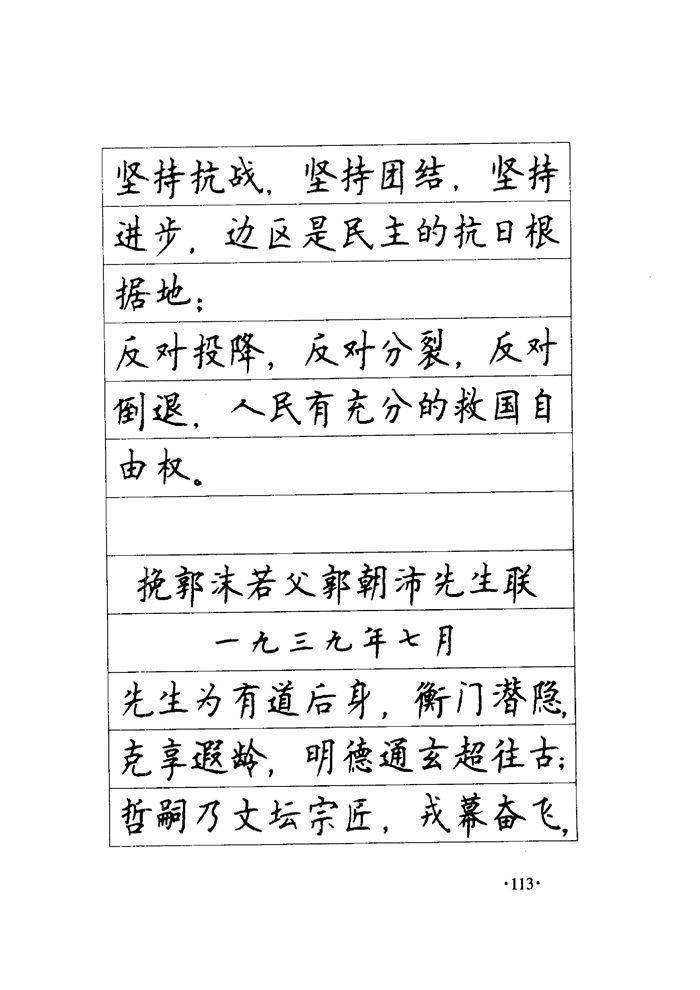 坚持抗战，坚持团结，坚持
进步，边区是民主的抗日根
据地；
反对投降，反对分裂，反对
倒退，人民有充分的救国自
由权。
挽郭沫若父郭朝沛先生联
一九三九年七月
先生为有道后身，衡门潜隐，
克享遐龄，明德通玄超往古；
哲嗣乃文坛宗匠，戎幕奋飞，
·113·